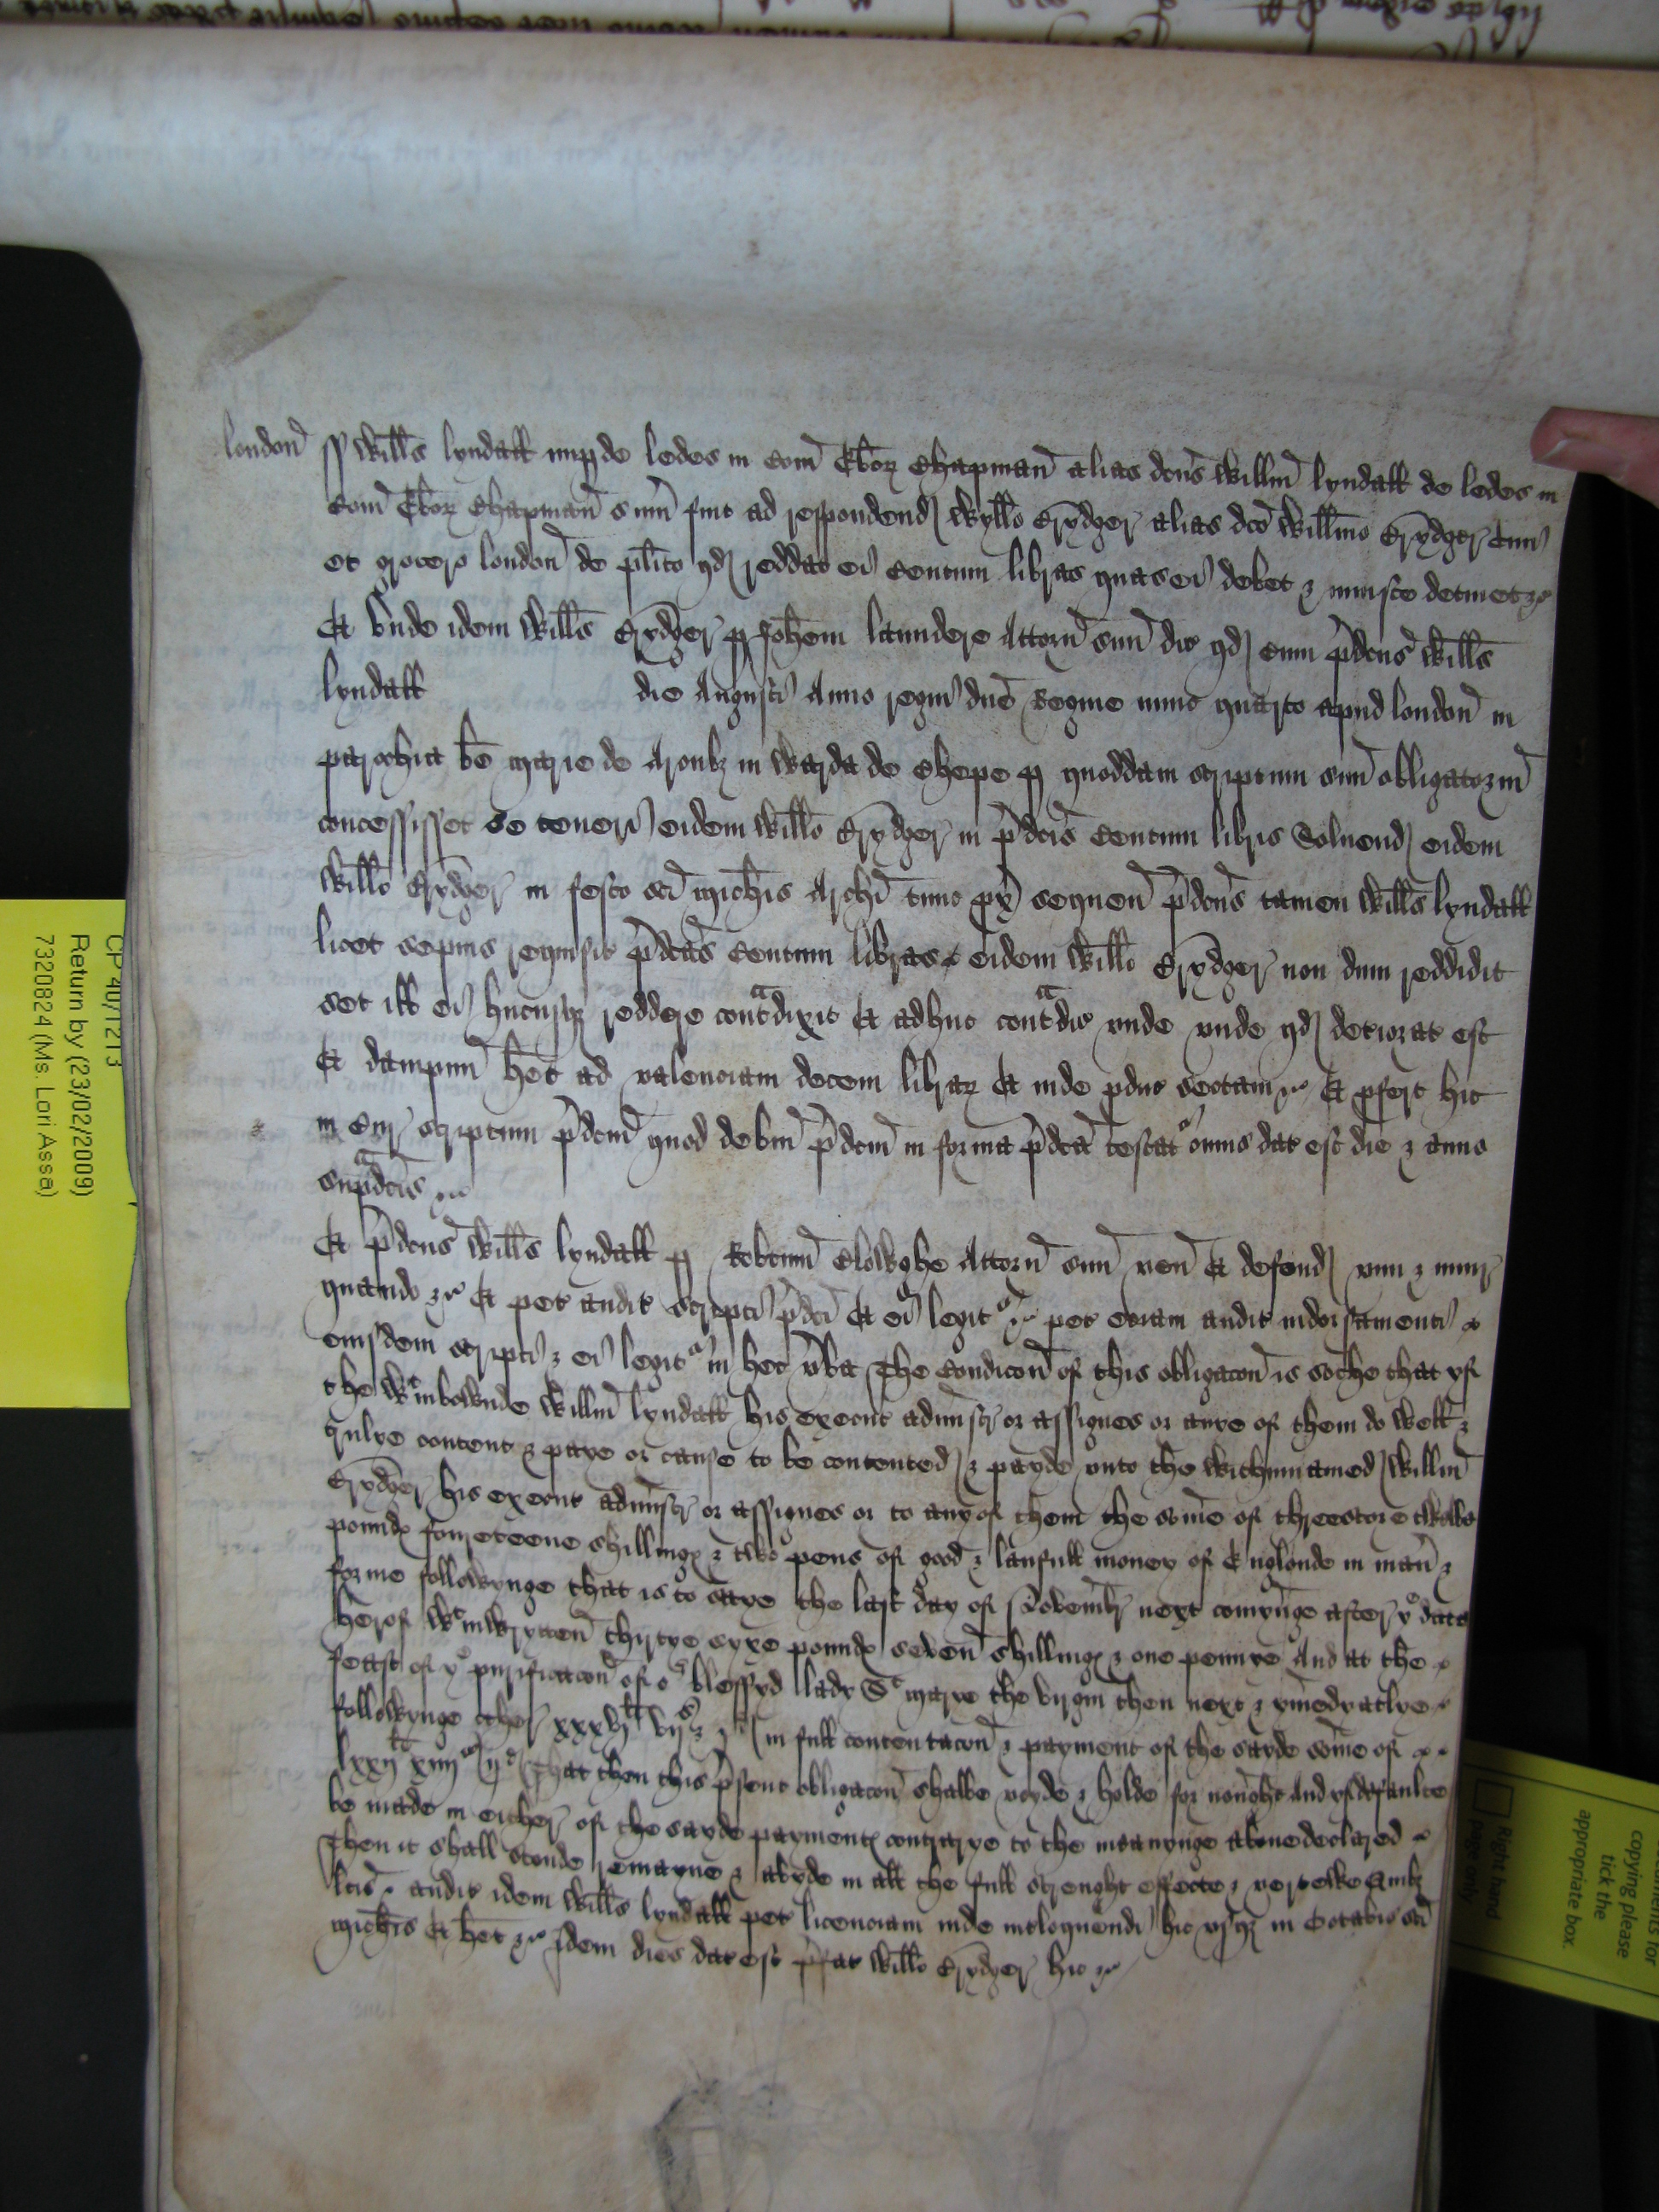 london̄ ss Willl̄s lyndall nup de ledes in Com̄ Ebor Chapman̄ alias dcūs Willm̄ lyndall de ledes in
Com̄ Ebor Chapman̄ sum̄ fuit ad respondend Wyllo Crydger alias dco Willmo Crydger Ciui
et grocero london̄ de plīto qd reddat ei Centum libras quas ei debet & iniuste detinet &c
Et Unde idem Willl̄s Crydger p Joh̄em laundere Attorn̄ suū dic qd cum p̄dcūs Willl̄s
lyndall die Augusti Anno regni dn̄e Regine nunc quarto apud london̄ in
parochia bē marie de Arcubz in Warda de Chepe p quoddam scriptum suū obligatorm̄
concessisset se teneri eidem Willo Crydger in p̄dcīs Centum libris Soluend eidem
Willo Crydger in festo scī mich̄is Arch̄i tunc px̄ sequen̄ p̄dcūs tamen Willl̄s lyndall
licet sepius requisit p̄dcās Centum libras eidem Willo Crydger non dum reddidit
set ill ei hucusqz reddere contadixit Et adhuc contadic unde unde qd deteriorat est
Et dampnū h̄et ad valenciam decem librar Et inde pduc sectam &c Et pfert hic
in Cur scriptum p̄dcm̄ quod debm̄ p̄dcm̄ in forma p̄dcā testat cuius dat est die & anno
sup̄adcīs &c
Et p̄dcūs Willl̄s lyndall p Robtum̄ Clowghe Attorn̄ suū ven̄ Et defend vim & iniur
quando &c Et pet audit scripti p̄dcī Et ei legit &c pet etiam audit indorsamenti
eiusdem scripti & ei legit in hec v̄ba The Condicon̄ of this obligacon̄ is soche that yf
the Wt inbownde Willm̄ lyndall his execut adm̄istr or assignes or anye of them do well &
trulye content & paye or cause to be contented & payde vnto the Withinnamed Willm̄
Crydger his execut adm̄istr or assignes or to any of them the som̄e of threescore twelve
poundꝭ foureteene shillingꝭ & two pens of good & laufull money of Englonde in man̄ &
forme followynge that is to saye the last day of Novemb̄r next comyn̄ge after ye date
herof Wt inwrytten̄ thirtye syxe poundꝭ seven̄ shillingꝭ & one pennye And at the
feast of ye purificacon̄ of or blessyd lady St marye the virgin then next & ymedyatlye
followynge other xxxvjli vijs & jd in full contentacon̄ & payment of the sayde som̄e of
lxxijli xiiijs ijd That then this p̄sent obligacon̄ shalbe voyde & holde for nought And yf defaulte
be made in either of the sayde paymentꝭ contrarye to the meanynge above declared
Then it shall stonde remayne & abyde in all the full strenght effecte & vertewe Quibz
lcīs & audit idem Willl̄s lyndall pet licenciam inde int̄loquendi hic vsqz in Octabis scī
mich̄is Et h̄et &c Idem dies dat est p̄fat Willo Crydger hic &c
CP 40/1213
Return by (23/02/2009)
7320824 (Ms. Lori Assa)
copying please
tick the
appropriate box.
Right hand
page only